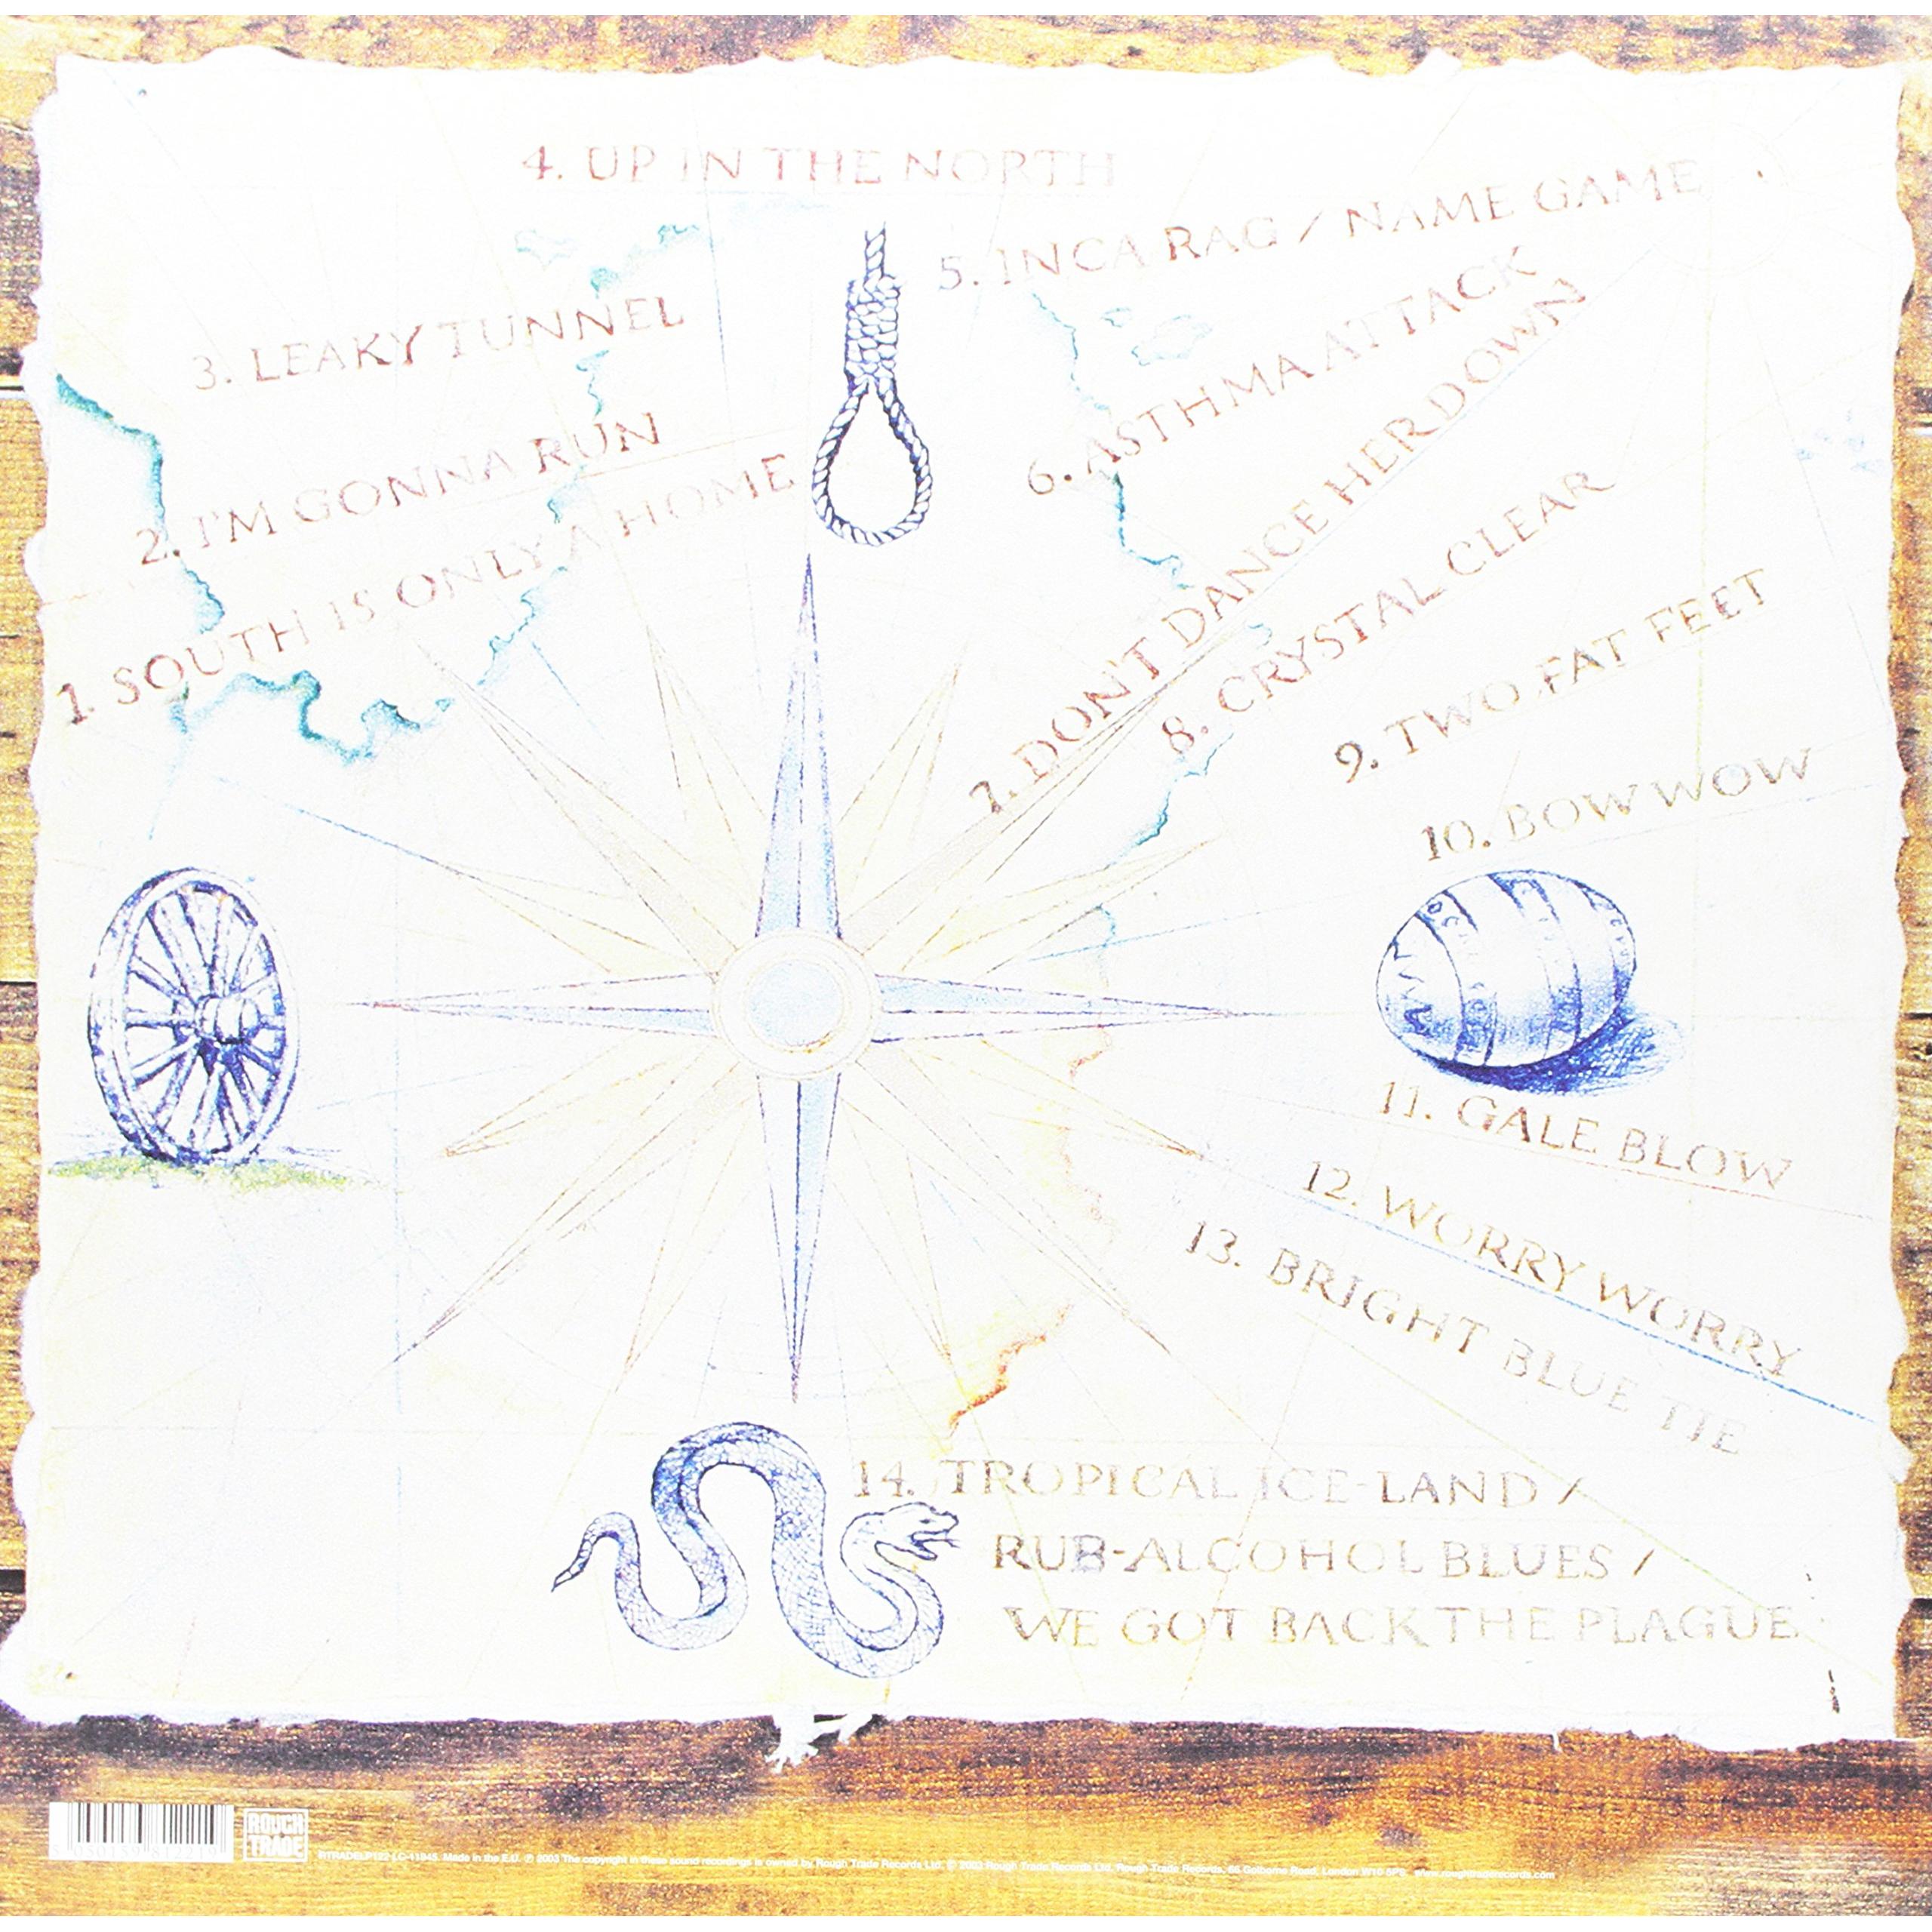 4. UP IN THE NORTH
5. INCA RAG / NAME GAME
3. LEAKY TUNNEL
6. ASTHMA ATTACK
2. I'M GONNA RUN
7. DON'T DANCE HER DOWN
1. SOUTH IS ONLY A HOME
8. CRYSTAL CLEAR
9. TWO FAT FEET
10. BOW WOW
11. GALE BLOW
12. WORRY WORRY
13. BRIGHT BLUE TIE
14. TROPICAL ICE-LAND /
RUB-ALCOHOL BLUES /
WE GOT BACK THE PLAGUE
ROUGH
TRADE
RTRADELP122 LC-11845. Made in the E.U. ℗ 2003 The copyright in these sound recordings is owned by Rough Trade Records Ltd. © 2003 Rough Trade Records Ltd. Rough Trade Records, 66 Golborne Road, London W10 5PS www.roughtraderecords.com